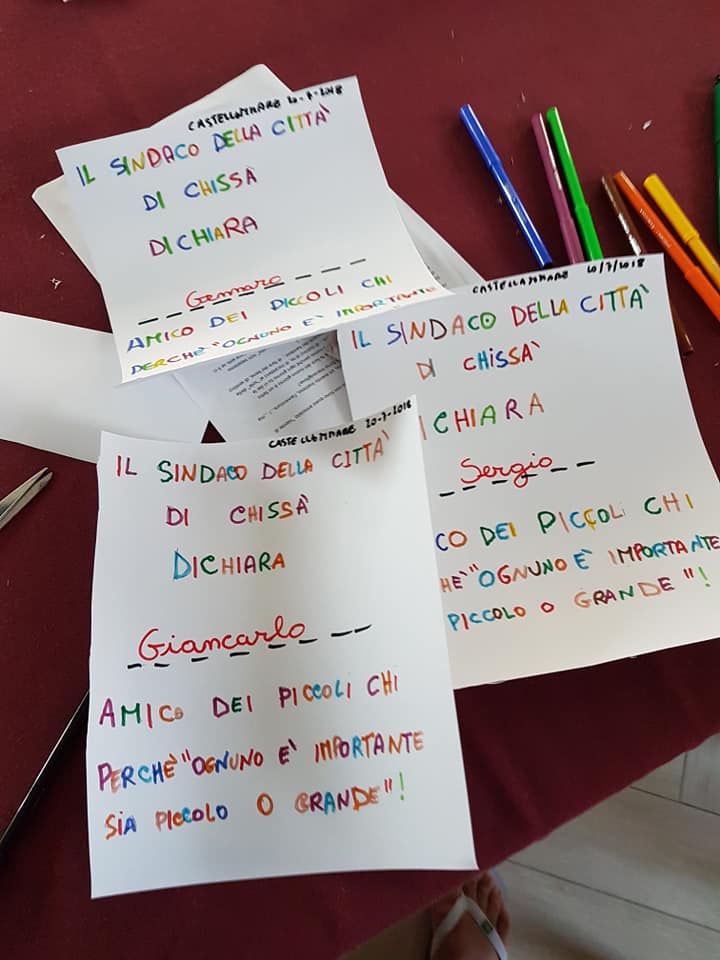 CASTELLAMMARE 20-7-2018
IL SINDACO DELLA CITTÀ
DI CHISSÀ
DICHIARA
Gennaro
AMICO DEI PICCOLI CHI
PERCHÈ "OGNUNO È IMPORTANTE
CASTELLAMMARE 20/7/2018
IL SINDACO DELLA CITTÀ
DI CHISSÀ
ICHIARA
Sergio
CO DEI PICCOLI CHI
HÈ "OGNUNO È IMPORTANTE
PICCOLO O GRANDE"!
CASTELLAMMARE 20-7-2018
IL SINDACO DELLA CITTÀ
DI CHISSÀ
DICHIARA
Giancarlo
AMICO DEI PICCOLI CHI
PERCHÈ "OGNUNO È IMPORTANTE
SIA PICCOLO O GRANDE"!